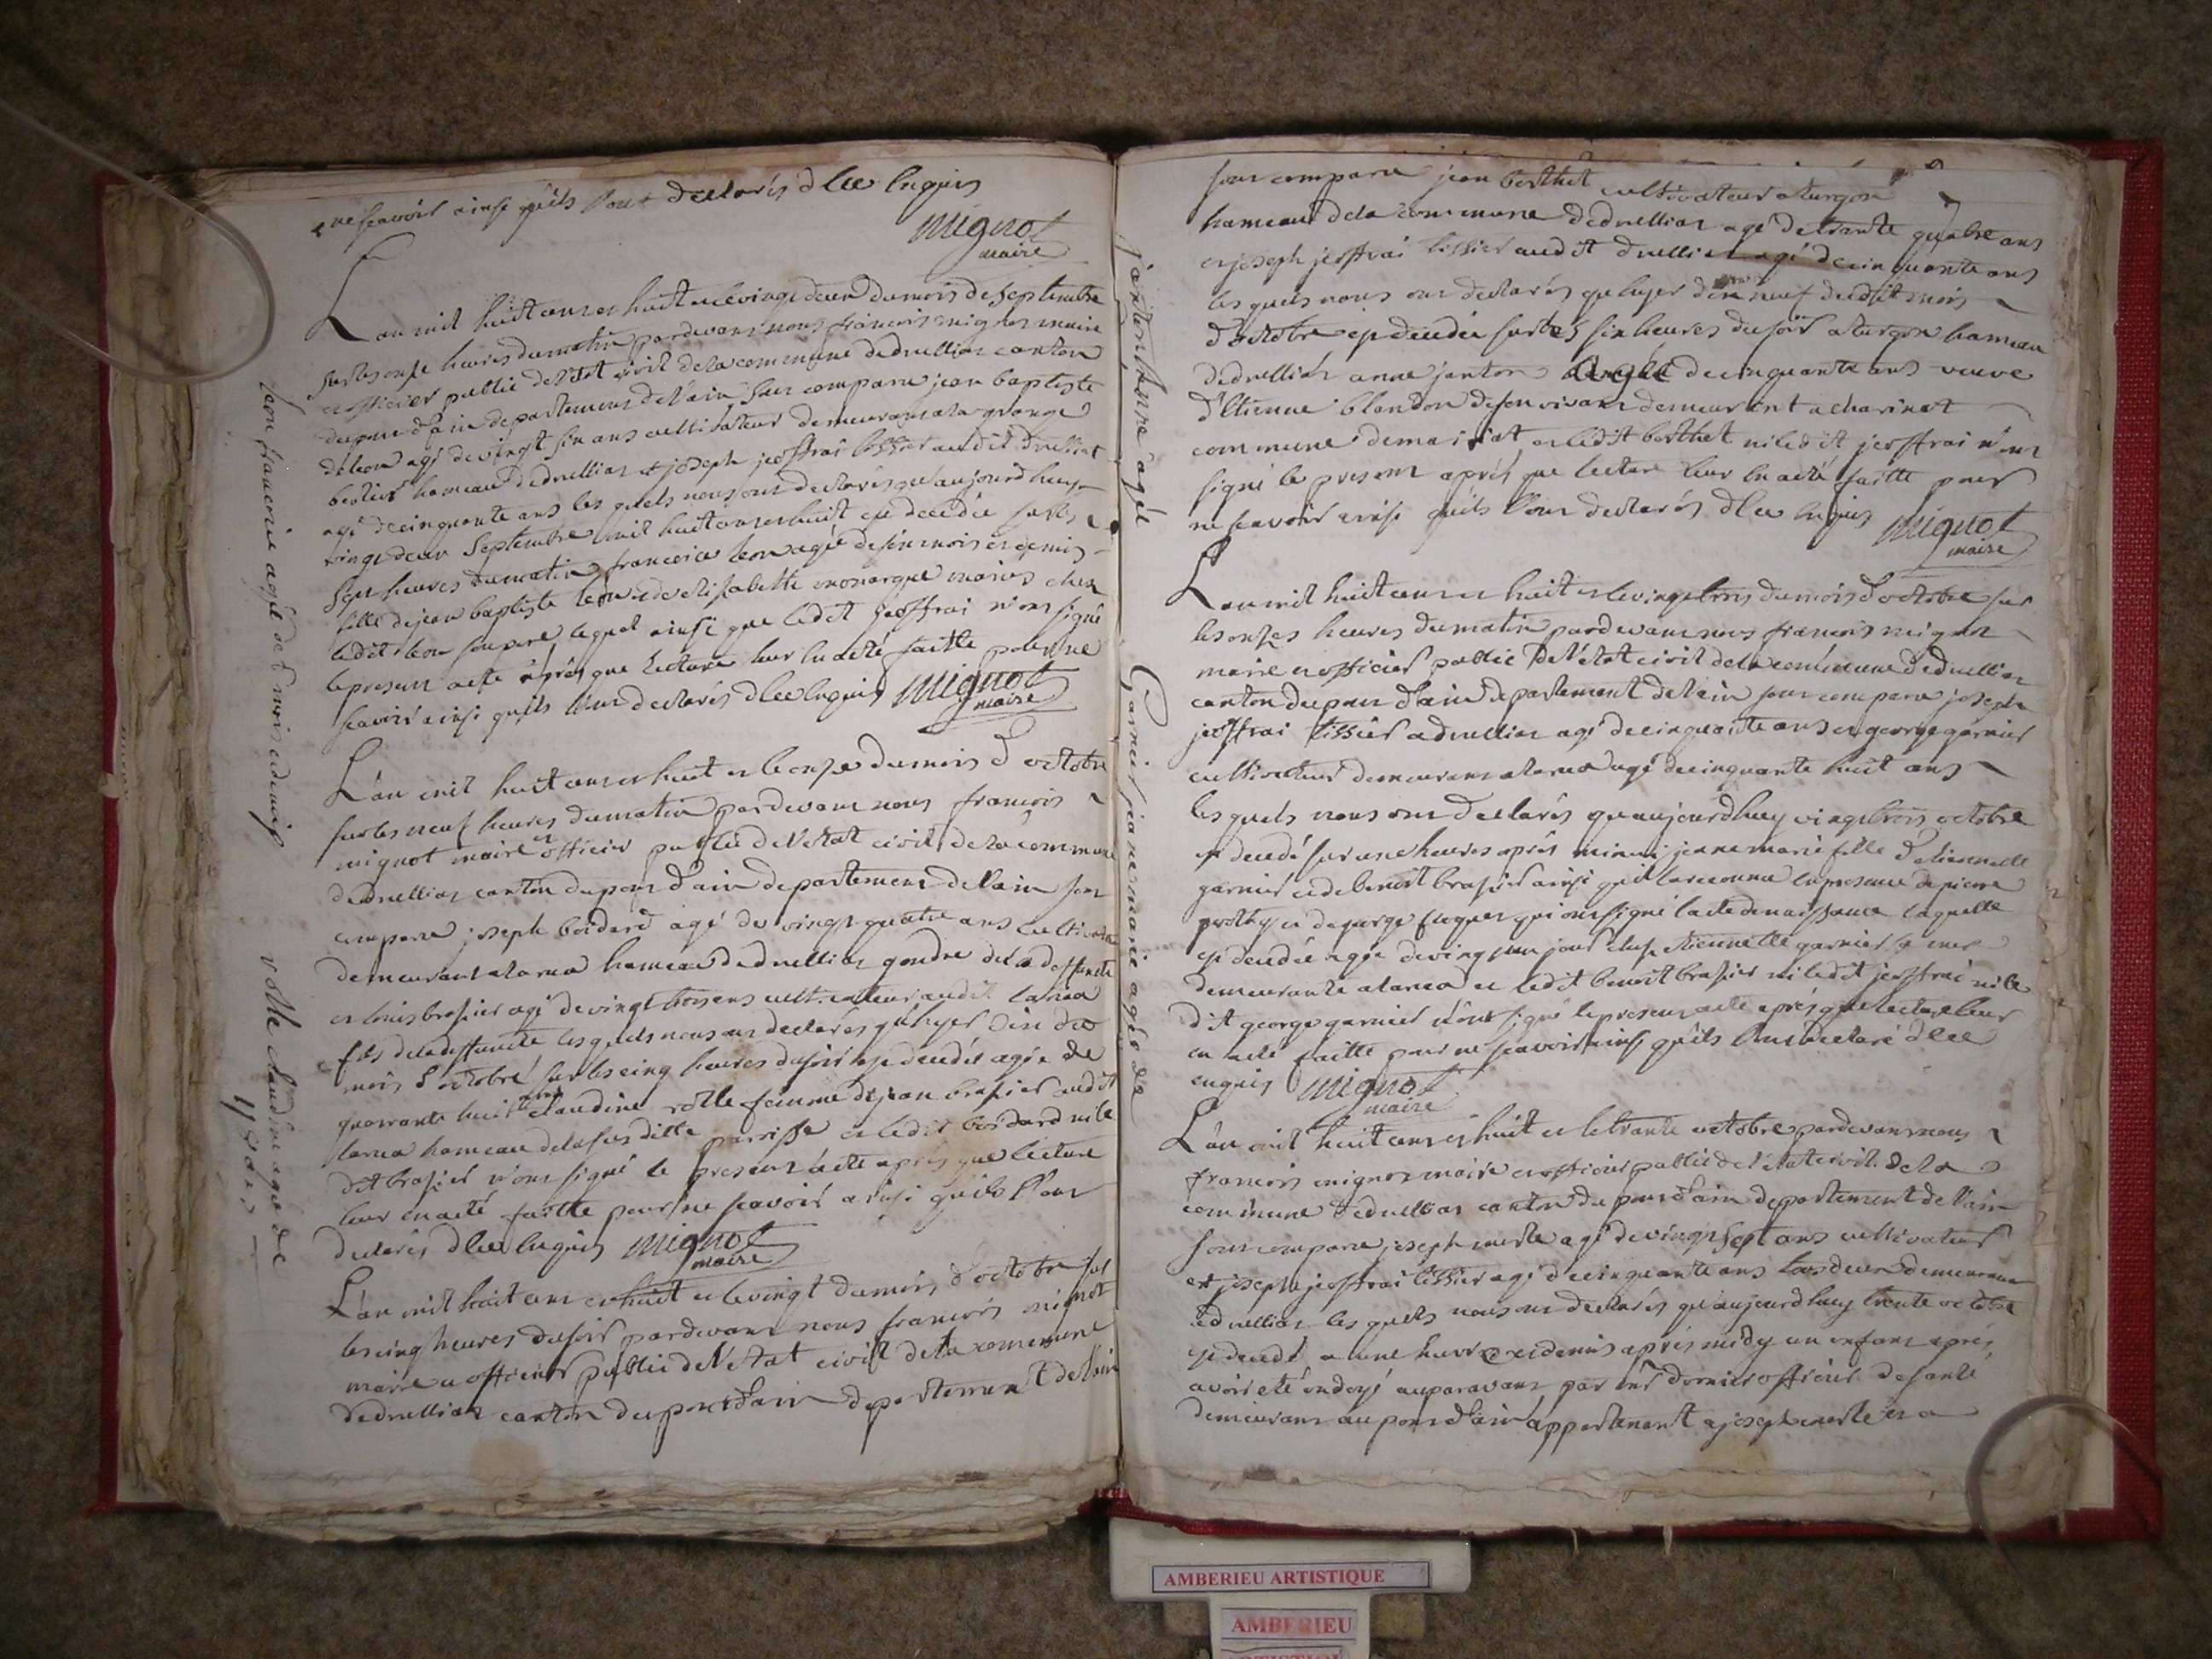 ne scavoir ainsi qu'ils l'ont declarés dlee enquis
mignot
maire
L'an mil huit cent et huit et le vingt deux du mois de septembre
sur les onze heures du matin pardevant nous francois mignot maire
et officier public de l'état civil de la commune de druillias canton
du pont d'ain departement de l'ain sont comparu jean baptiste
leon agé de vingt six ans cultivateur demeurant a la grange
hameau de druillias et joseph jeoffrai tissier audit druillias
agé de cinquante ans les quels nous ont declarés qu'aujourdhuy
vingt deux septembre mil huit cent et huit est decedée sur les
sept heures du matin francoise leon agée de six mois et demis
fille de jean baptiste leon et de elisabette monarque mariés chez
ledit leon son pere lequel ainsi que ledit jeoffrai n'ont signé
le present acte aprés que lecture leur en a été faitte pour ne
scavoir ainsi qu'ils l'ont declarés dlee enquis mignot
maire
L'an mil huit cent et huit et le onze du mois d'octobre
sur les neuf heures du matin pardevant nous francois
mignot maire et officier public de l'etat civil de la commune
de druillias canton du pont d'ain departement de l'ain sont
comparu joseph boidard agé de vingt quatre ans cultivateur
demeurant a larna hameau de druillias gendre de la deffuncte
et louis brasier agé de vingt trois ans cultivateur audit larna
fils de la deffuncte les quels nous ont declarés qu'hyer dix du
mois d'octobre sur les cinq heures du soir est decedée agée de
quarante huit ans claudine rolle femme de jean brasier audit
larna hameau de la susditte parroisse et ledit boidard ni le
dit brasier n'ont signé le present acte aprés que lecture
leur en a été faitte pour ne scavoir ainsi qu'ils l'ont
declarés dlee enquis mignot
maire
L'an mil huit cent et huit et le vingt du mois d'octobre sur
les cinq heures du soir pardevant nous francois mignot
maire et officier public de l'etat civil de la commune
de druillias canton du pont d'ain departement de l'ain
leon francoise agée de 6 mois et demis
rolle claudine agée de
48 ans
sont comparu jean berthet cultivateur a turgon
hameau de la commune de druillias agé de trante quatre ans
et joseph jeoffrai tissier audit druillias agé de cinquante ans
les quels nous ont declarés que hyer dix neuf dudit mois
d'octobre est decedée sur les six heures du soir a turgon hameau
de druillias anne janton agée de cinquante ans veuve
d'etienne blandon de son vivant demeurant a charinat
commune de et ledit berthet ni ledit jeoffrai n'ont
signé le present aprés que lecture leur en a été faitte pour
ne scavoir ainsi qu'ils l'ont declarés dlee enquis mignot
maire
L'an mil huit cent et huit et le vingt trois du mois d'octobre sur
les onzes heures du matin pardevant nous francois mignot
maire et officier public de l'état civil de la commune de druillias
canton du pont d'ain departement de l'ain sont comparu joseph
jeoffrai tissier a druillias agé de cinquante ans et george garnier
cultivateur demeurant a larna agé de cinquante huit ans
les quels nous ont declarés qu'aujourdhuy vingt trois octobre
est decedé sur une heures aprés minuit jeanne marie fille d'etiennette
garnier et de benoit brasier ainsi qu'il l'a reconnu en presence de pierre
et de george qui ont signé l'acte de naissance laquelle
est decedée agée de vingt un jour chez etiennette garnier sa mere
demeurante a larna et ledit benoit brasier ni ledit jeoffrai ni le
dit george garnier n'ont signé le present acte aprés que lecture leur
en a été faitte pour ne scavoir ainsi qu'ils l'ont declaré dlee
enquis mignot
maire
L'an mil huit cent et huit et le trante octobre pardevant nous
francois mignot maire et officier public de l'état civil de la
commune de druillias canton du pont d'ain departement de l'ain
sont comparu joseph merle agé de vingt sept ans cultivateur
et joseph jeoffrai tissier agé de cinquante ans tous deux demeurant
a druillias les quels nous ont declarés qu'aujourdhuy trente octobre
est decedé a une heure et demis aprés midy un enfant aprés
avoir eté ondoyé auparavant par officier de santé
demeurant au pont d'ain appartenant a joseph merle et a
janton anne agée
Garnier jeanne marie agée de
AMBERIEU ARTISTIQUE
AMBERIEU
ARTISTIQUE